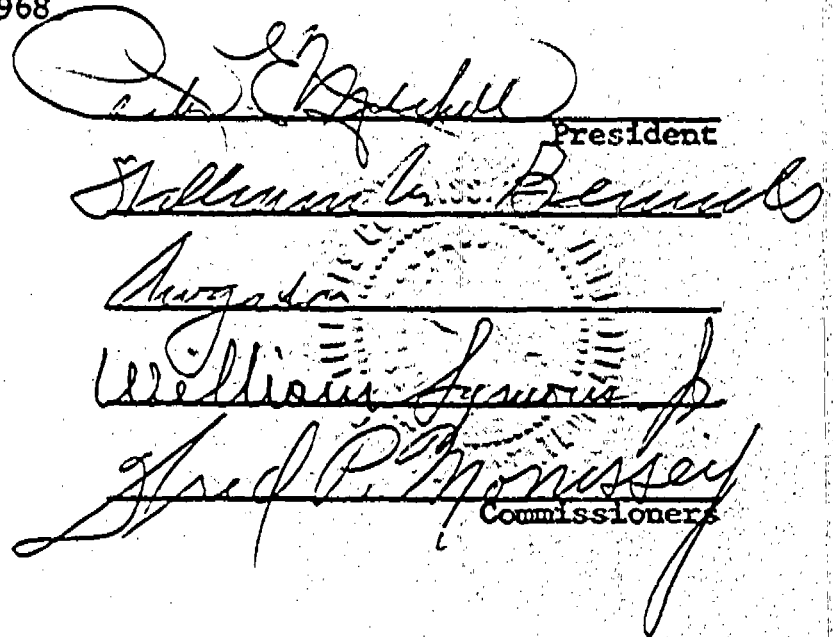 968
Peter E. Mitchell
President
William M. Bennett
A. W. Gatov
William Symons Jr.
Fred P. Morrissey
Commissioners